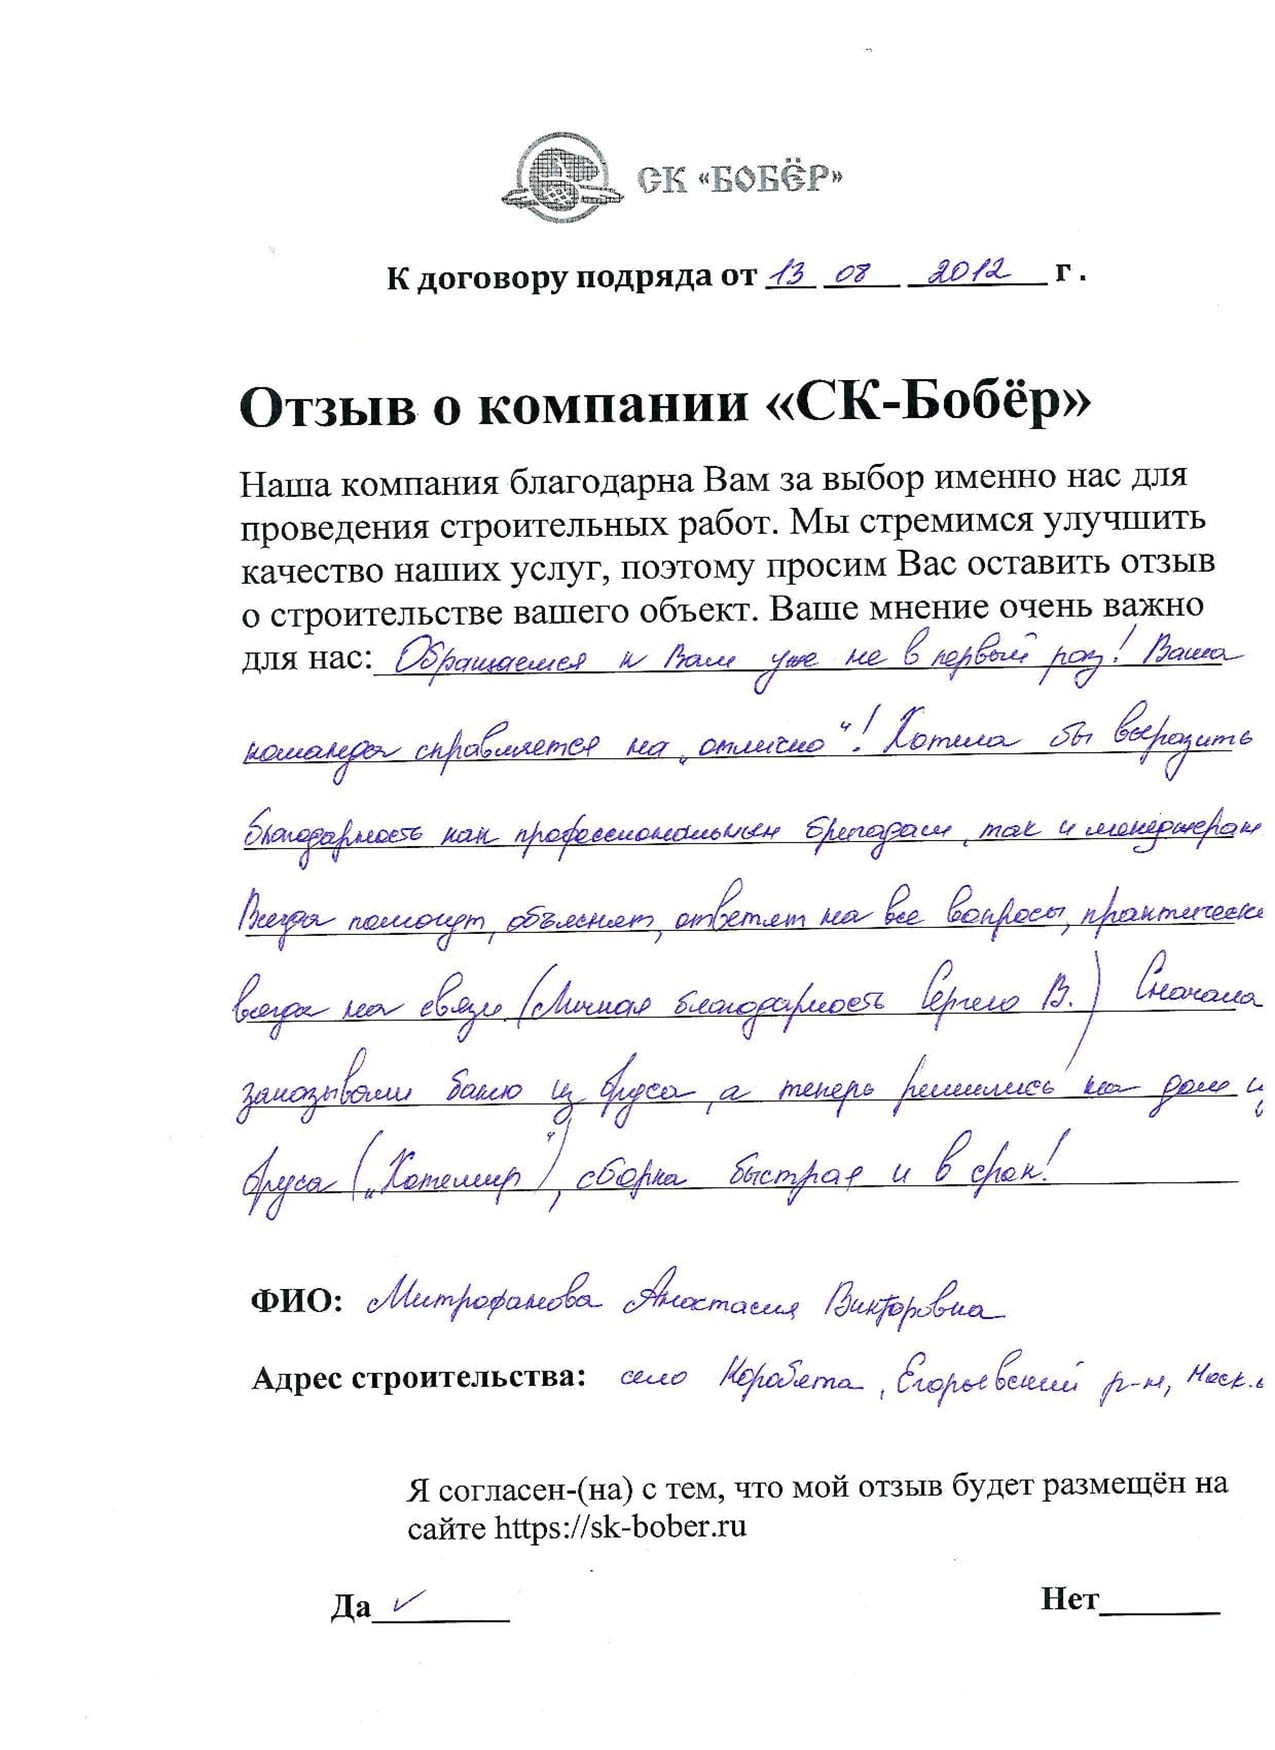 СК «БОБЁР»
К договору подряда от 13 08 2012 г .
Отзыв о компании «СК-Бобёр»
Наша компания благодарна Вам за выбор именно нас для
проведения строительных работ. Мы стремимся улучшить
качество наших услуг, поэтому просим Вас оставить отзыв
о строительстве вашего объект. Ваше мнение очень важно
для нас: Обращаемся к Вам уже не в первый раз! Ваша
команда справляется на „отлично“! Хотела бы выразить
благодарность как профессиональным бригадам, так и менеджерам
Всегда помогут, объяснят, ответят на все вопросы, практически
всегда на связи (Личная благодарность Сергею В.) Сначала
заказывали баню из бруса, а теперь решились на дом и
бруса („Хотемир“), сборка быстрая и в срок!
ФИО: Митрофанова Анастасия Викторовна
Адрес строительства: село Коробята, Егорьевский р-н, Моск.о
Я согласен-(на) с тем, что мой отзыв будет размещён на
сайте https://sk-bober.ru
Да ✓ Нет